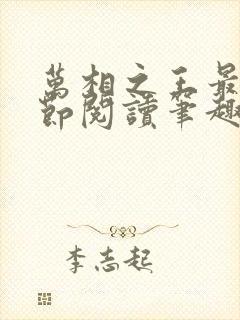 萬相之王最
節閱讀筆趣
李志起